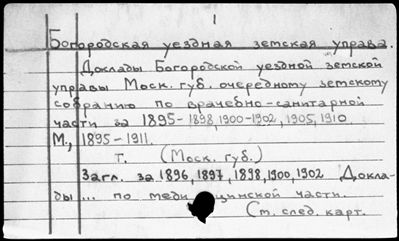 1
Богородская уездная земская управа.
Доклады Богородской уездной земской
управы Моск. губ. очередному земскому
собранию по врачебно-санитарной
части за 1895-1898, 1900-1902, 1905, 1910.
М., 1895-1911.
т. (Моск. губ.)
Загл. за 1896, 1897, 1898, 1900, 1902 Докла-
ды ... по меди цинской части.
См. след. карт.